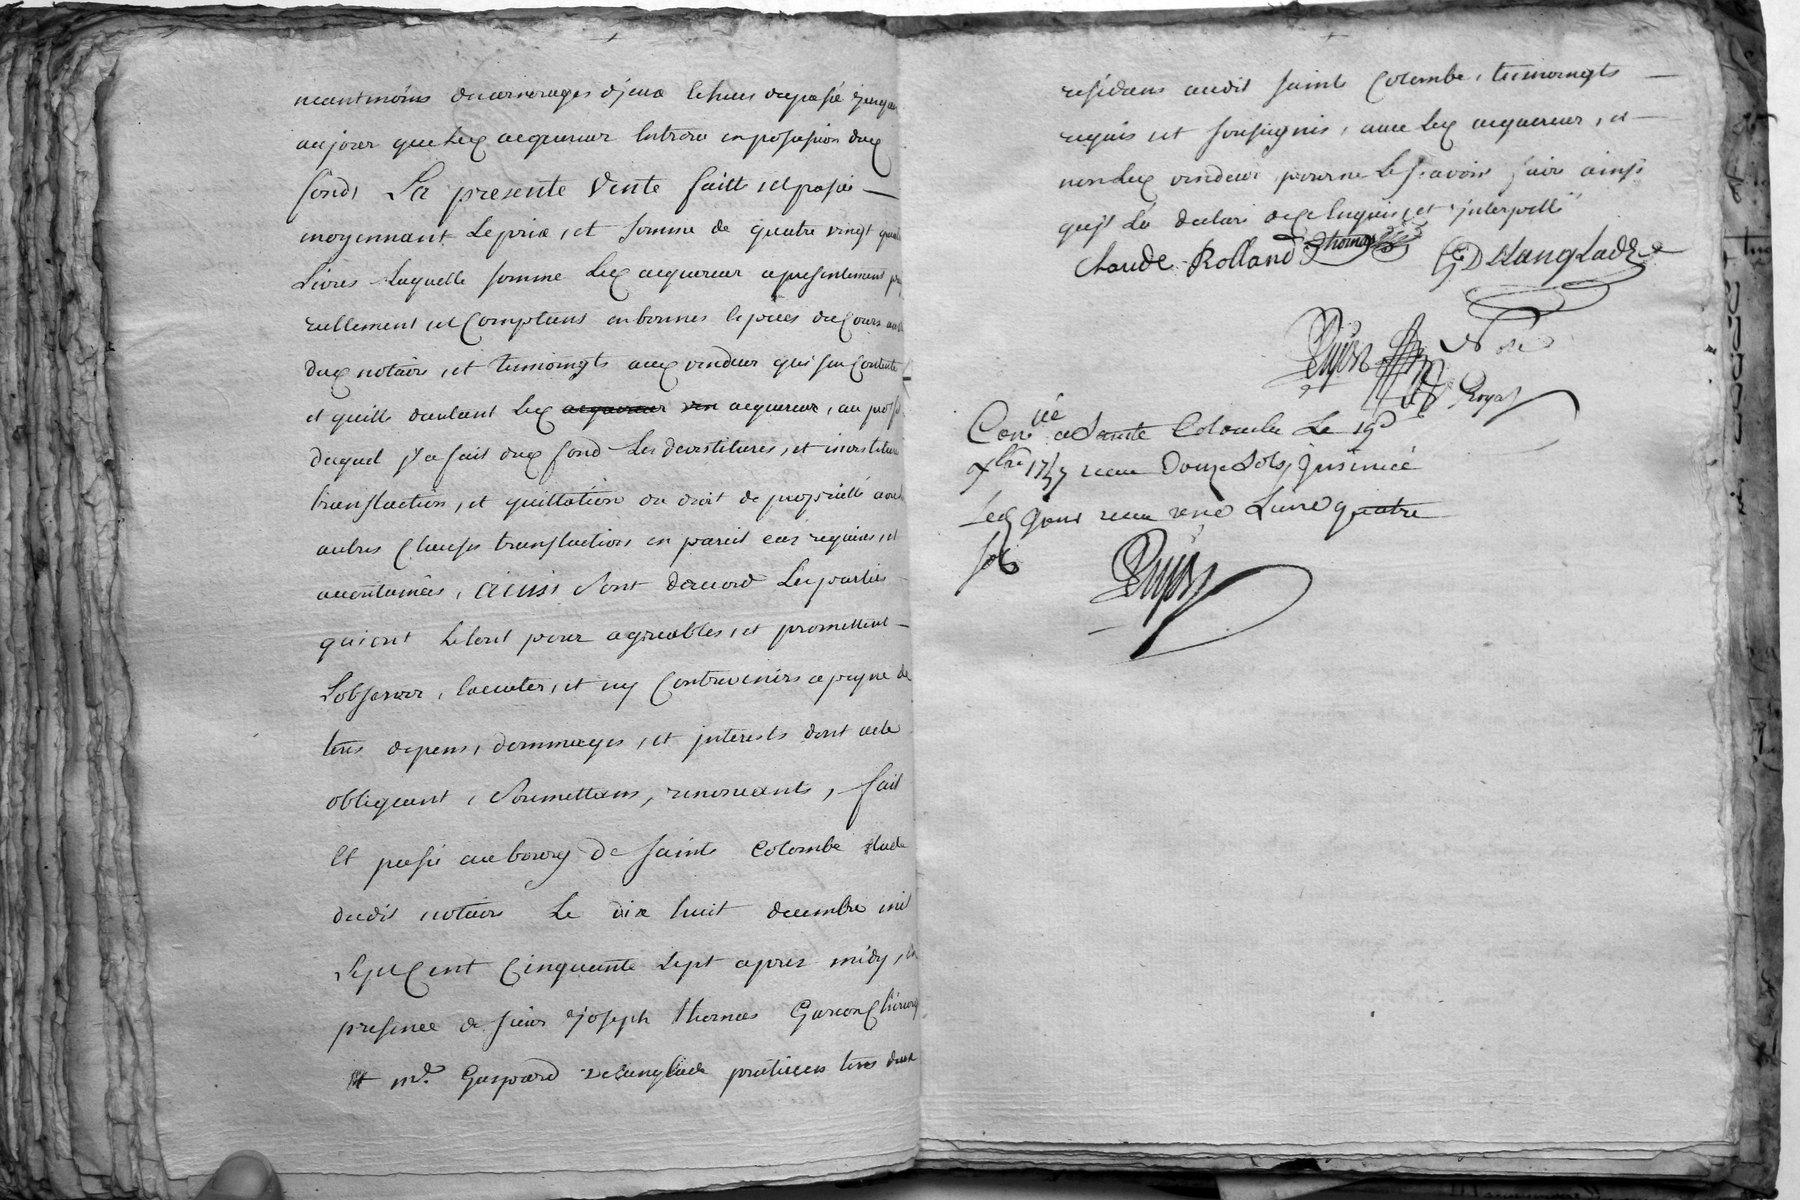 neantmoins des arrerages d'jceux sy hus du passé jusques
aujour que led acquereur Entrera en possession dud
fond, La presente Vente faitte et passée
moyennant Le prix, et somme de quatre vingt quatre
Livres Laquelle somme Led acquereur a presentement payé
reellement et Comptant en bonnes Espèces du Cours au vû
dud notaire, et temoingts aud vendeur qui sen Contente
et quitte dautant Led acquereur ven acquereur, au profit
duquel jl a fait dud fond Les devestitures, et investitures
translaction, et quittation du droit de proprietté avec
autres Clauses translactives en pareil cas requises, et
accoutumées, ainsi Sont daccord Les parties
qui ont Letout pour agreables, et promettent
Lobserver, Executer, et ny Contrevenirs a peyne de
tous depens, dommages, et jnterests dont acte
obligeant, Soumettans, renonceants, fait
Et passé au bourg de Sainte Colombe Etude
dudit notaire Le dix huit decembre mil
Sept Cent Cinquante Sept apres midy, En
presence de sieur joseph thomas Garcon Chirurg
et mr. Gaspard delanglade praticien tous deux
résidans audit Sainte Colombe, temoingts
requis et soussignés, avec led acquereur, et
non Led vendeur, pour ne Le scavoir faire ainsi
quil La declaré de ce Enquis, et jnterpellé
Claude Rolland Thomas G Delanglade
Puÿs Nore
Royal
Con lée a Sainte Colombe Le 19e
Xbre 1757 receu Douze Sols, Jnsinué
Led Jour receu une Livre quatre
sols
Puÿs